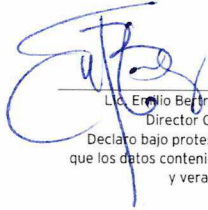 Lic. Emilio Bertr
Director G
Declaro bajo protes
que los datos conteni
y vera